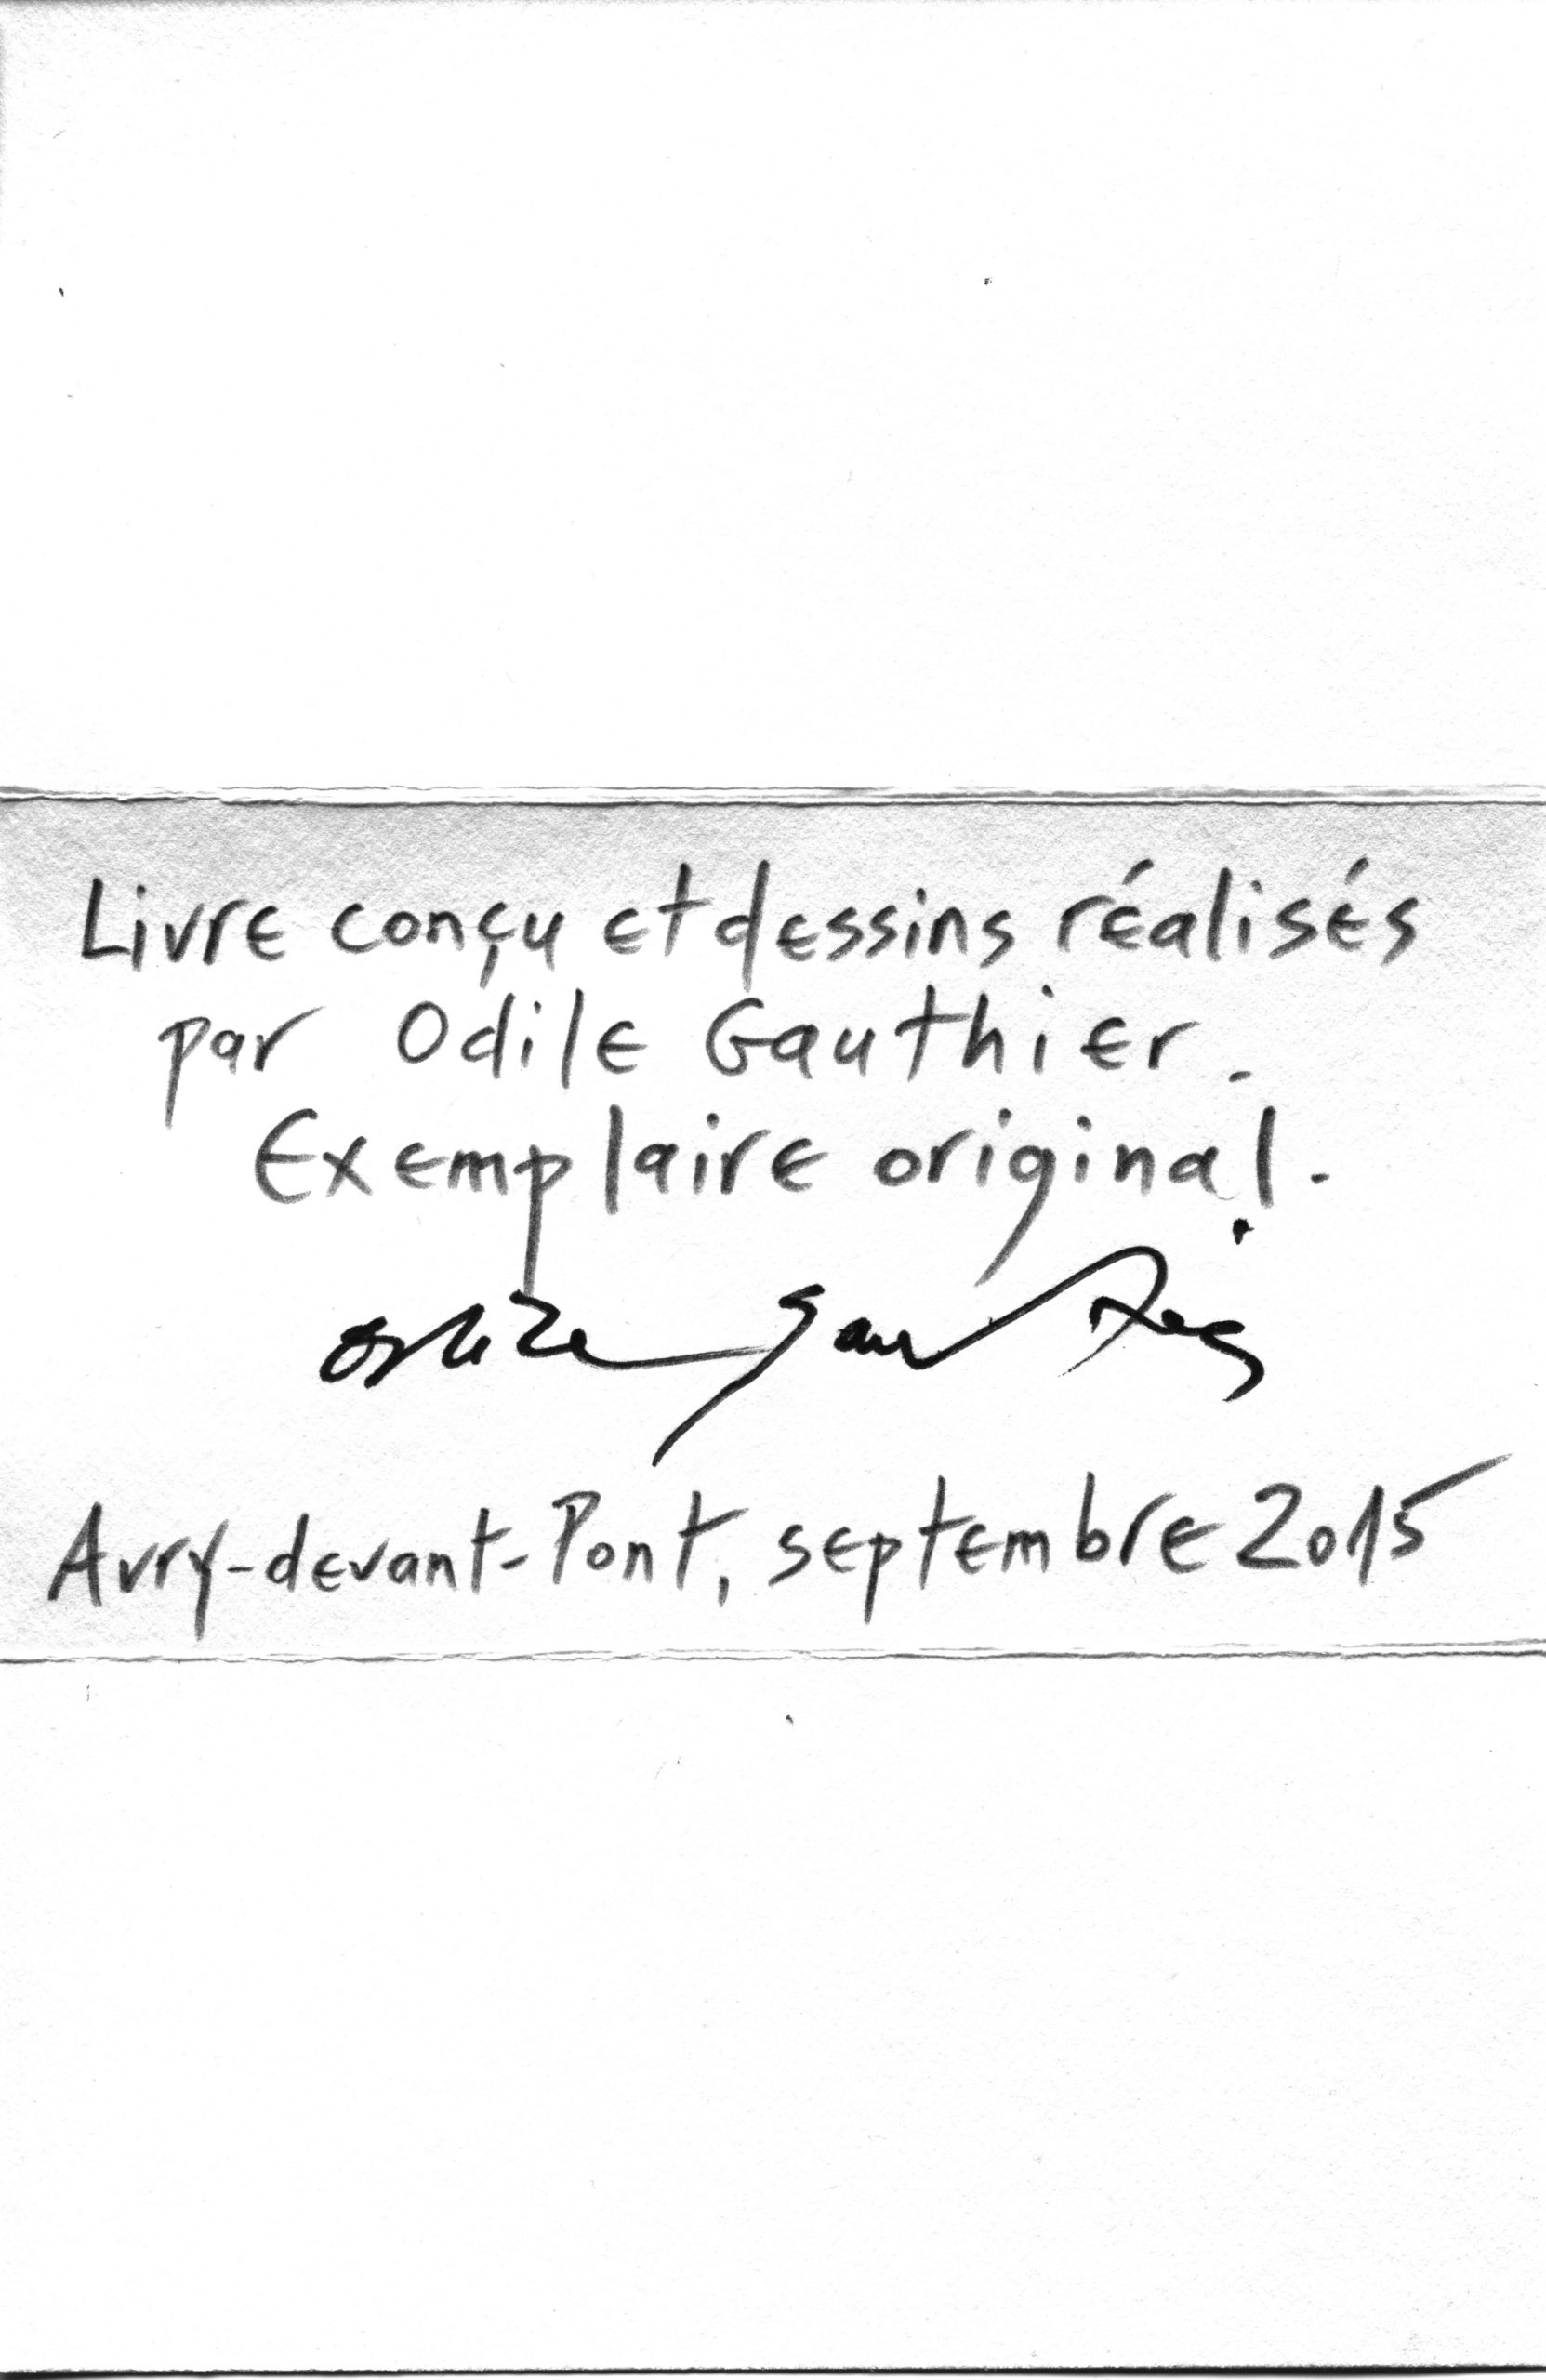 Livre conçu et dessins réalisés
par Odile Gauthier.
Exemplaire original.
Odile Gauthier
Avry-devant-Pont, septembre 2015